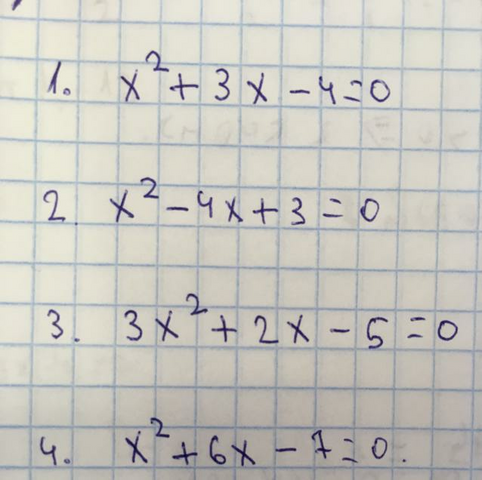 1. x²+3x-4=0
2. x²-4x+3=0
3. 3x²+2x-5=0
4. x²+6x-7=0.